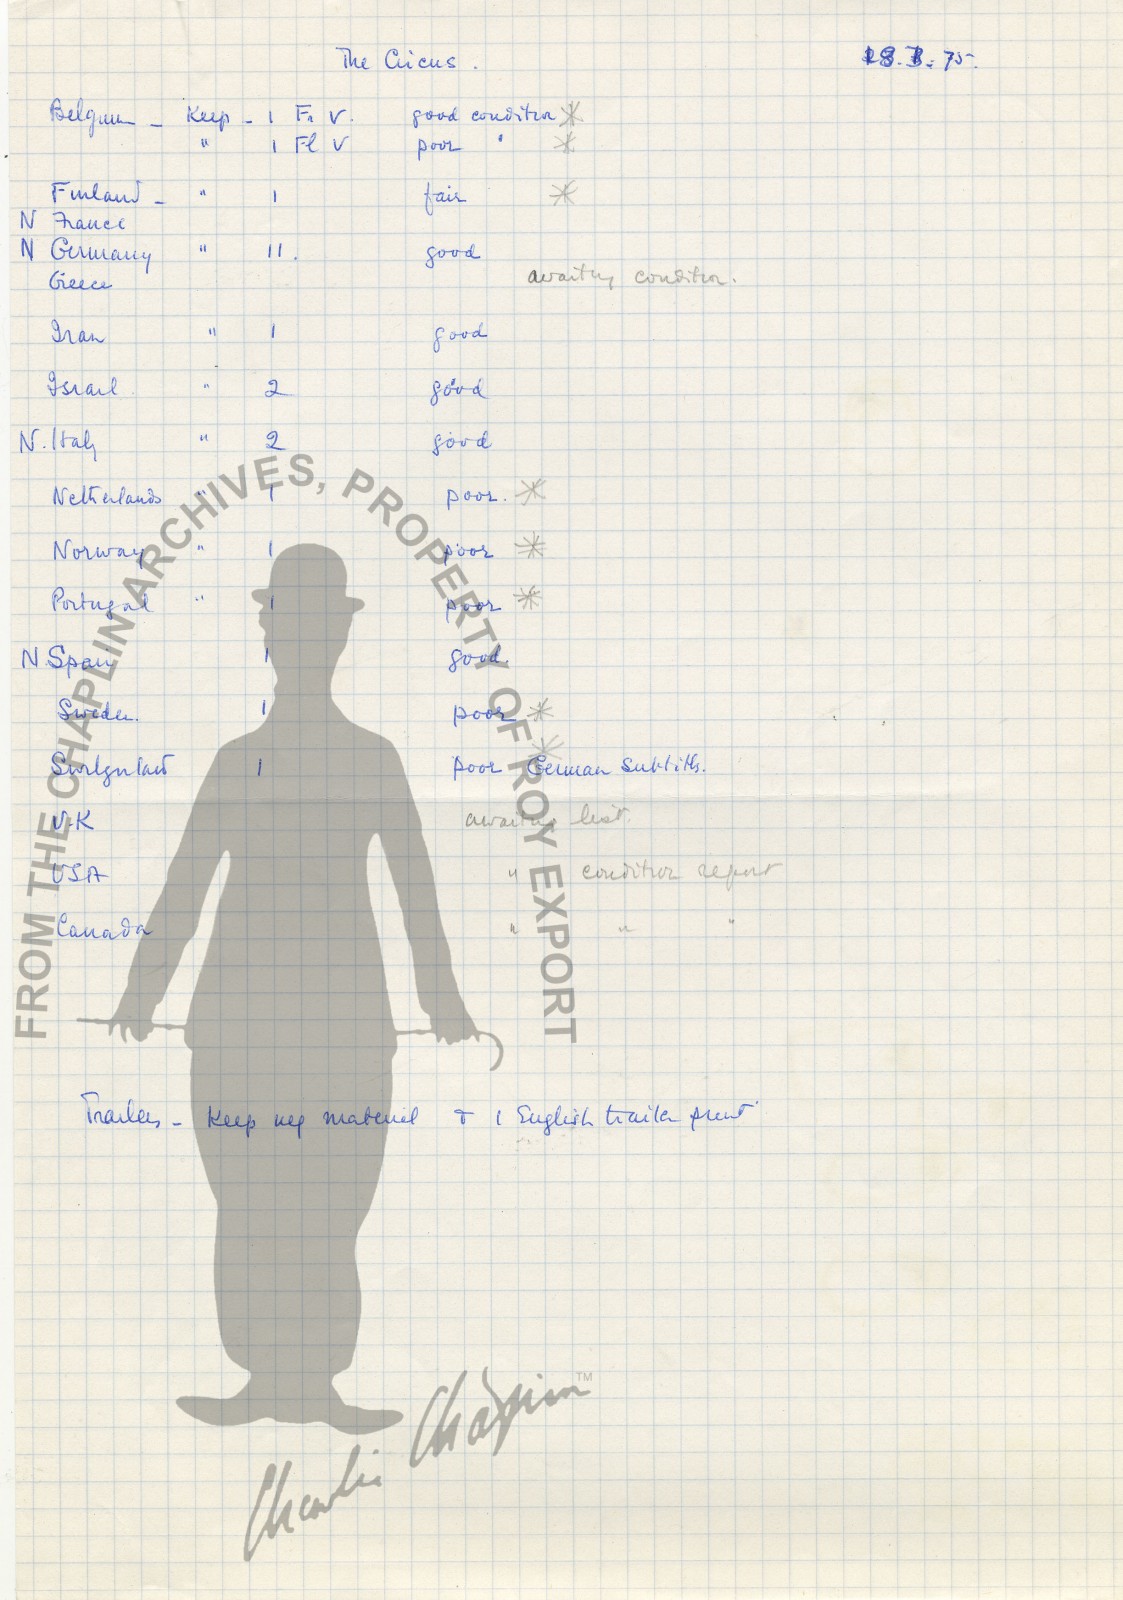 The Circus.
Belgium - Keep - 1 Fr V. good condition *
" 1 Fl V poor " *
Finland - " 1 fair *
N France
N Germany " 11. good
Greece awaiting condition.
Iran " 1 good
Israel " 2 good
N. Italy " 2 good
Netherlands " 1 poor. *
Norway " 1 poor *
Portugal " 1 poor *
N. Spain 1 good.
Sweden. 1 poor *
Switzerland 1 poor German subtitles. *
U.K awaiting list.
USA " condition report
Canada " " "
Trailers - Keep neg material & 1 English trailer print
FROM THE CHAPLIN ARCHIVES, PROPERTY OF ROY EXPORT
Charlie Chaplin TM